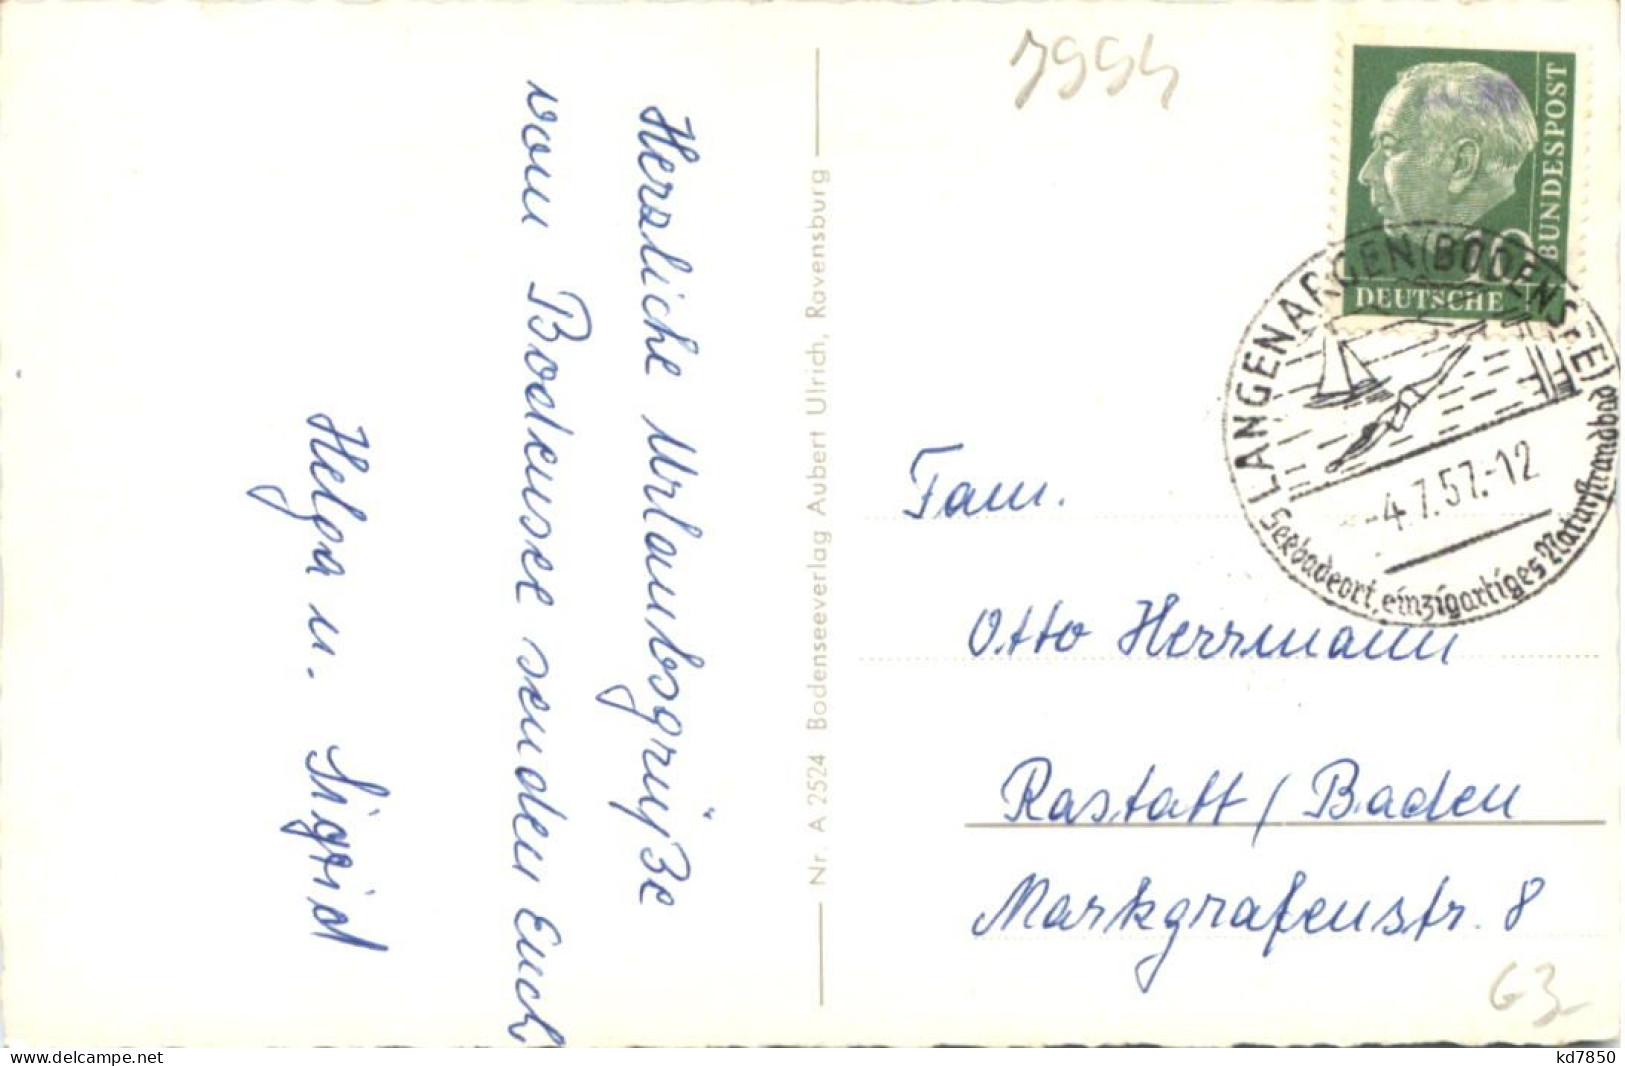 Herzliche Urlaubsgrüße
vom Bodensee senden Euch
Helga u. Sigrid
Nr. A 2524 Bodenseeverlag Aubert Ulrich, Ravensburg
7994
10
DEUTSCHE
BUNDESPOST
LANGENARGEN (BODENSEE)
-4.7.57.-12
Seebadeort, einzigartiges Naturstrandbad
Fam.
Otto Herrmann
Rastatt / Baden
Markgrafenstr. 8
G3
www.delcampe.net
kd7850